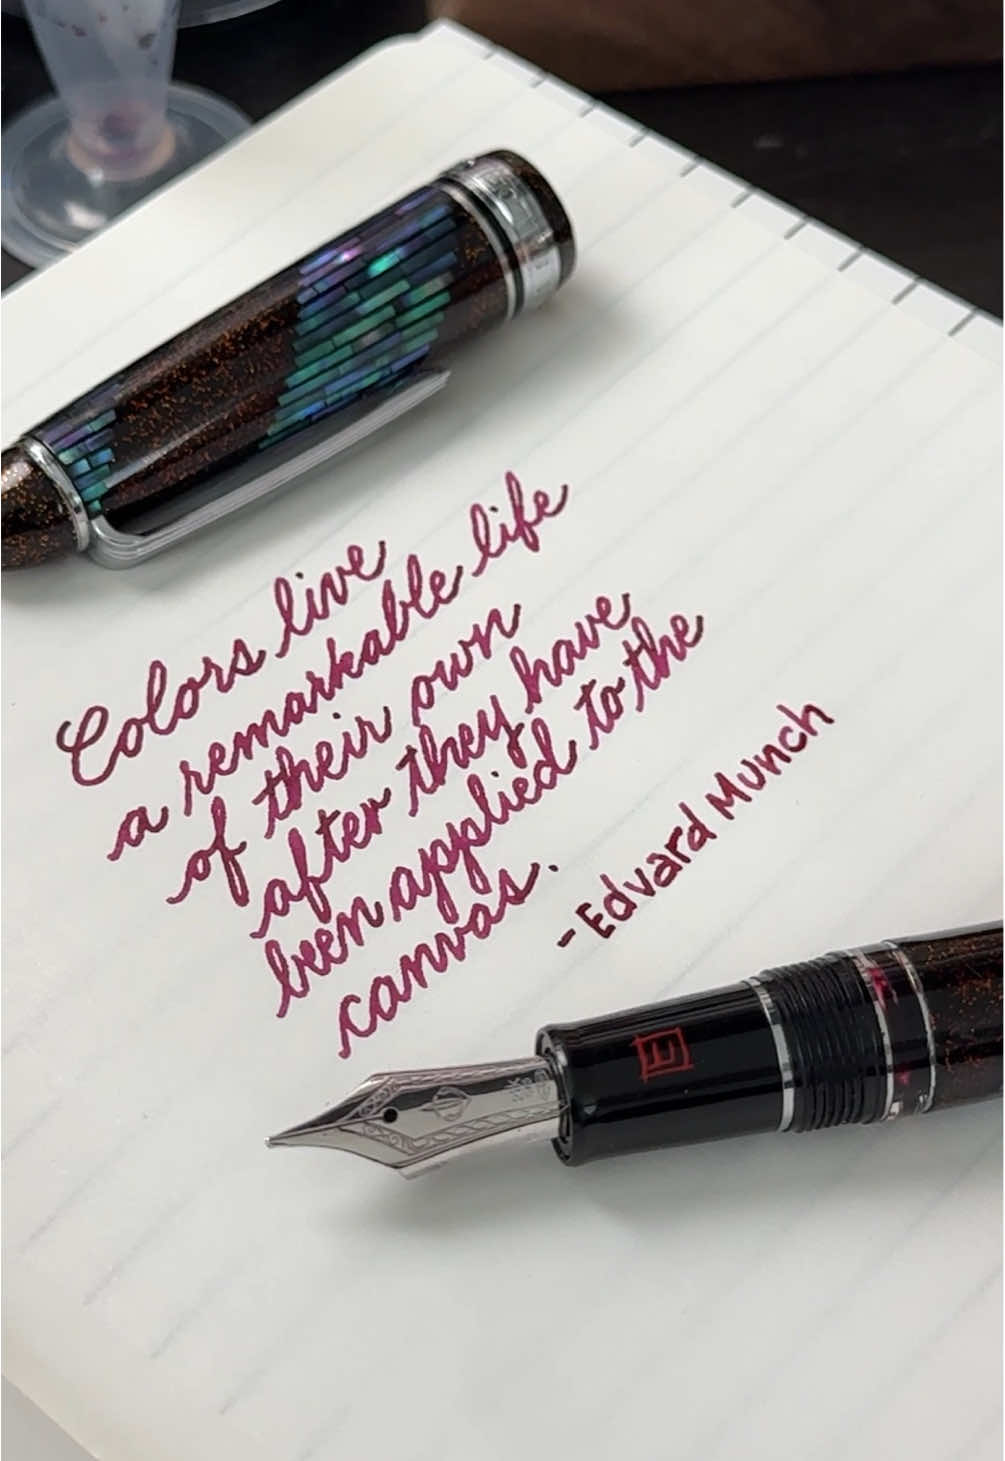 Colors live
a remarkable life
of their own
after they have
been applied to the
canvas.
- Edvard Munch